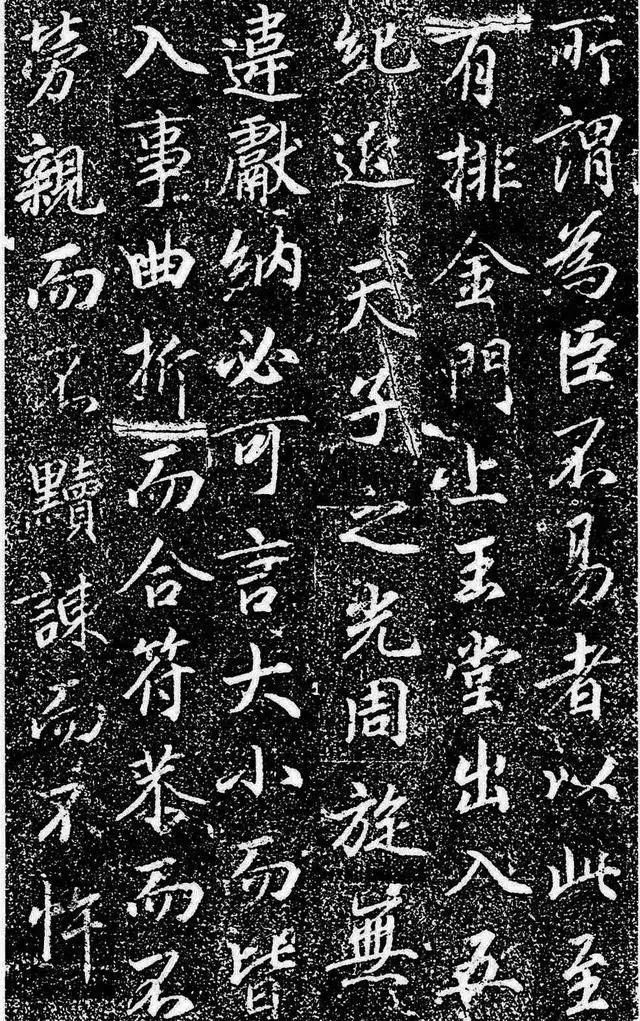 所謂為臣不易者以此至
有排金門上玉堂出入五
紀近天子之光周旋無
違獻納必可言大小而皆
入事曲折而合符恭而不
勞親而不黷諫而不忤